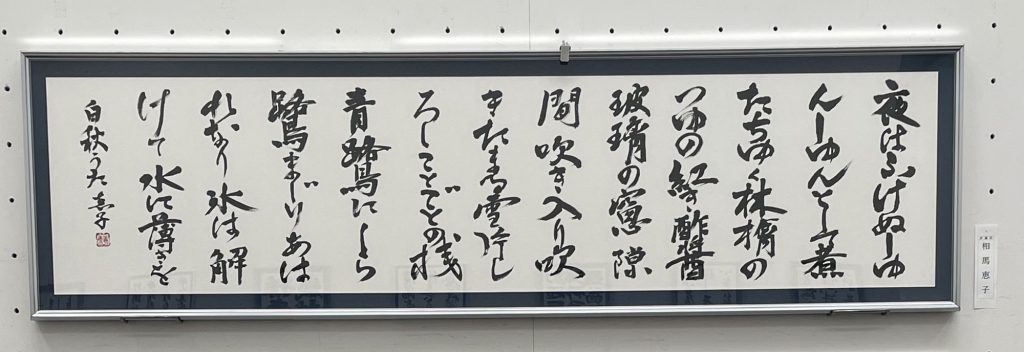 夜はふけぬしゆ
んしゆんとし煮
たちゆく林檎の
つゆの紅き酢醤
玻璃の窓隙
間吹き入り吹
きたまる雪片し
ろしことごとの桟
青鷺にしら
鷺まじりあは
れなり氷は解
けて水に薄きを
白秋うた 恵子
相馬恵子